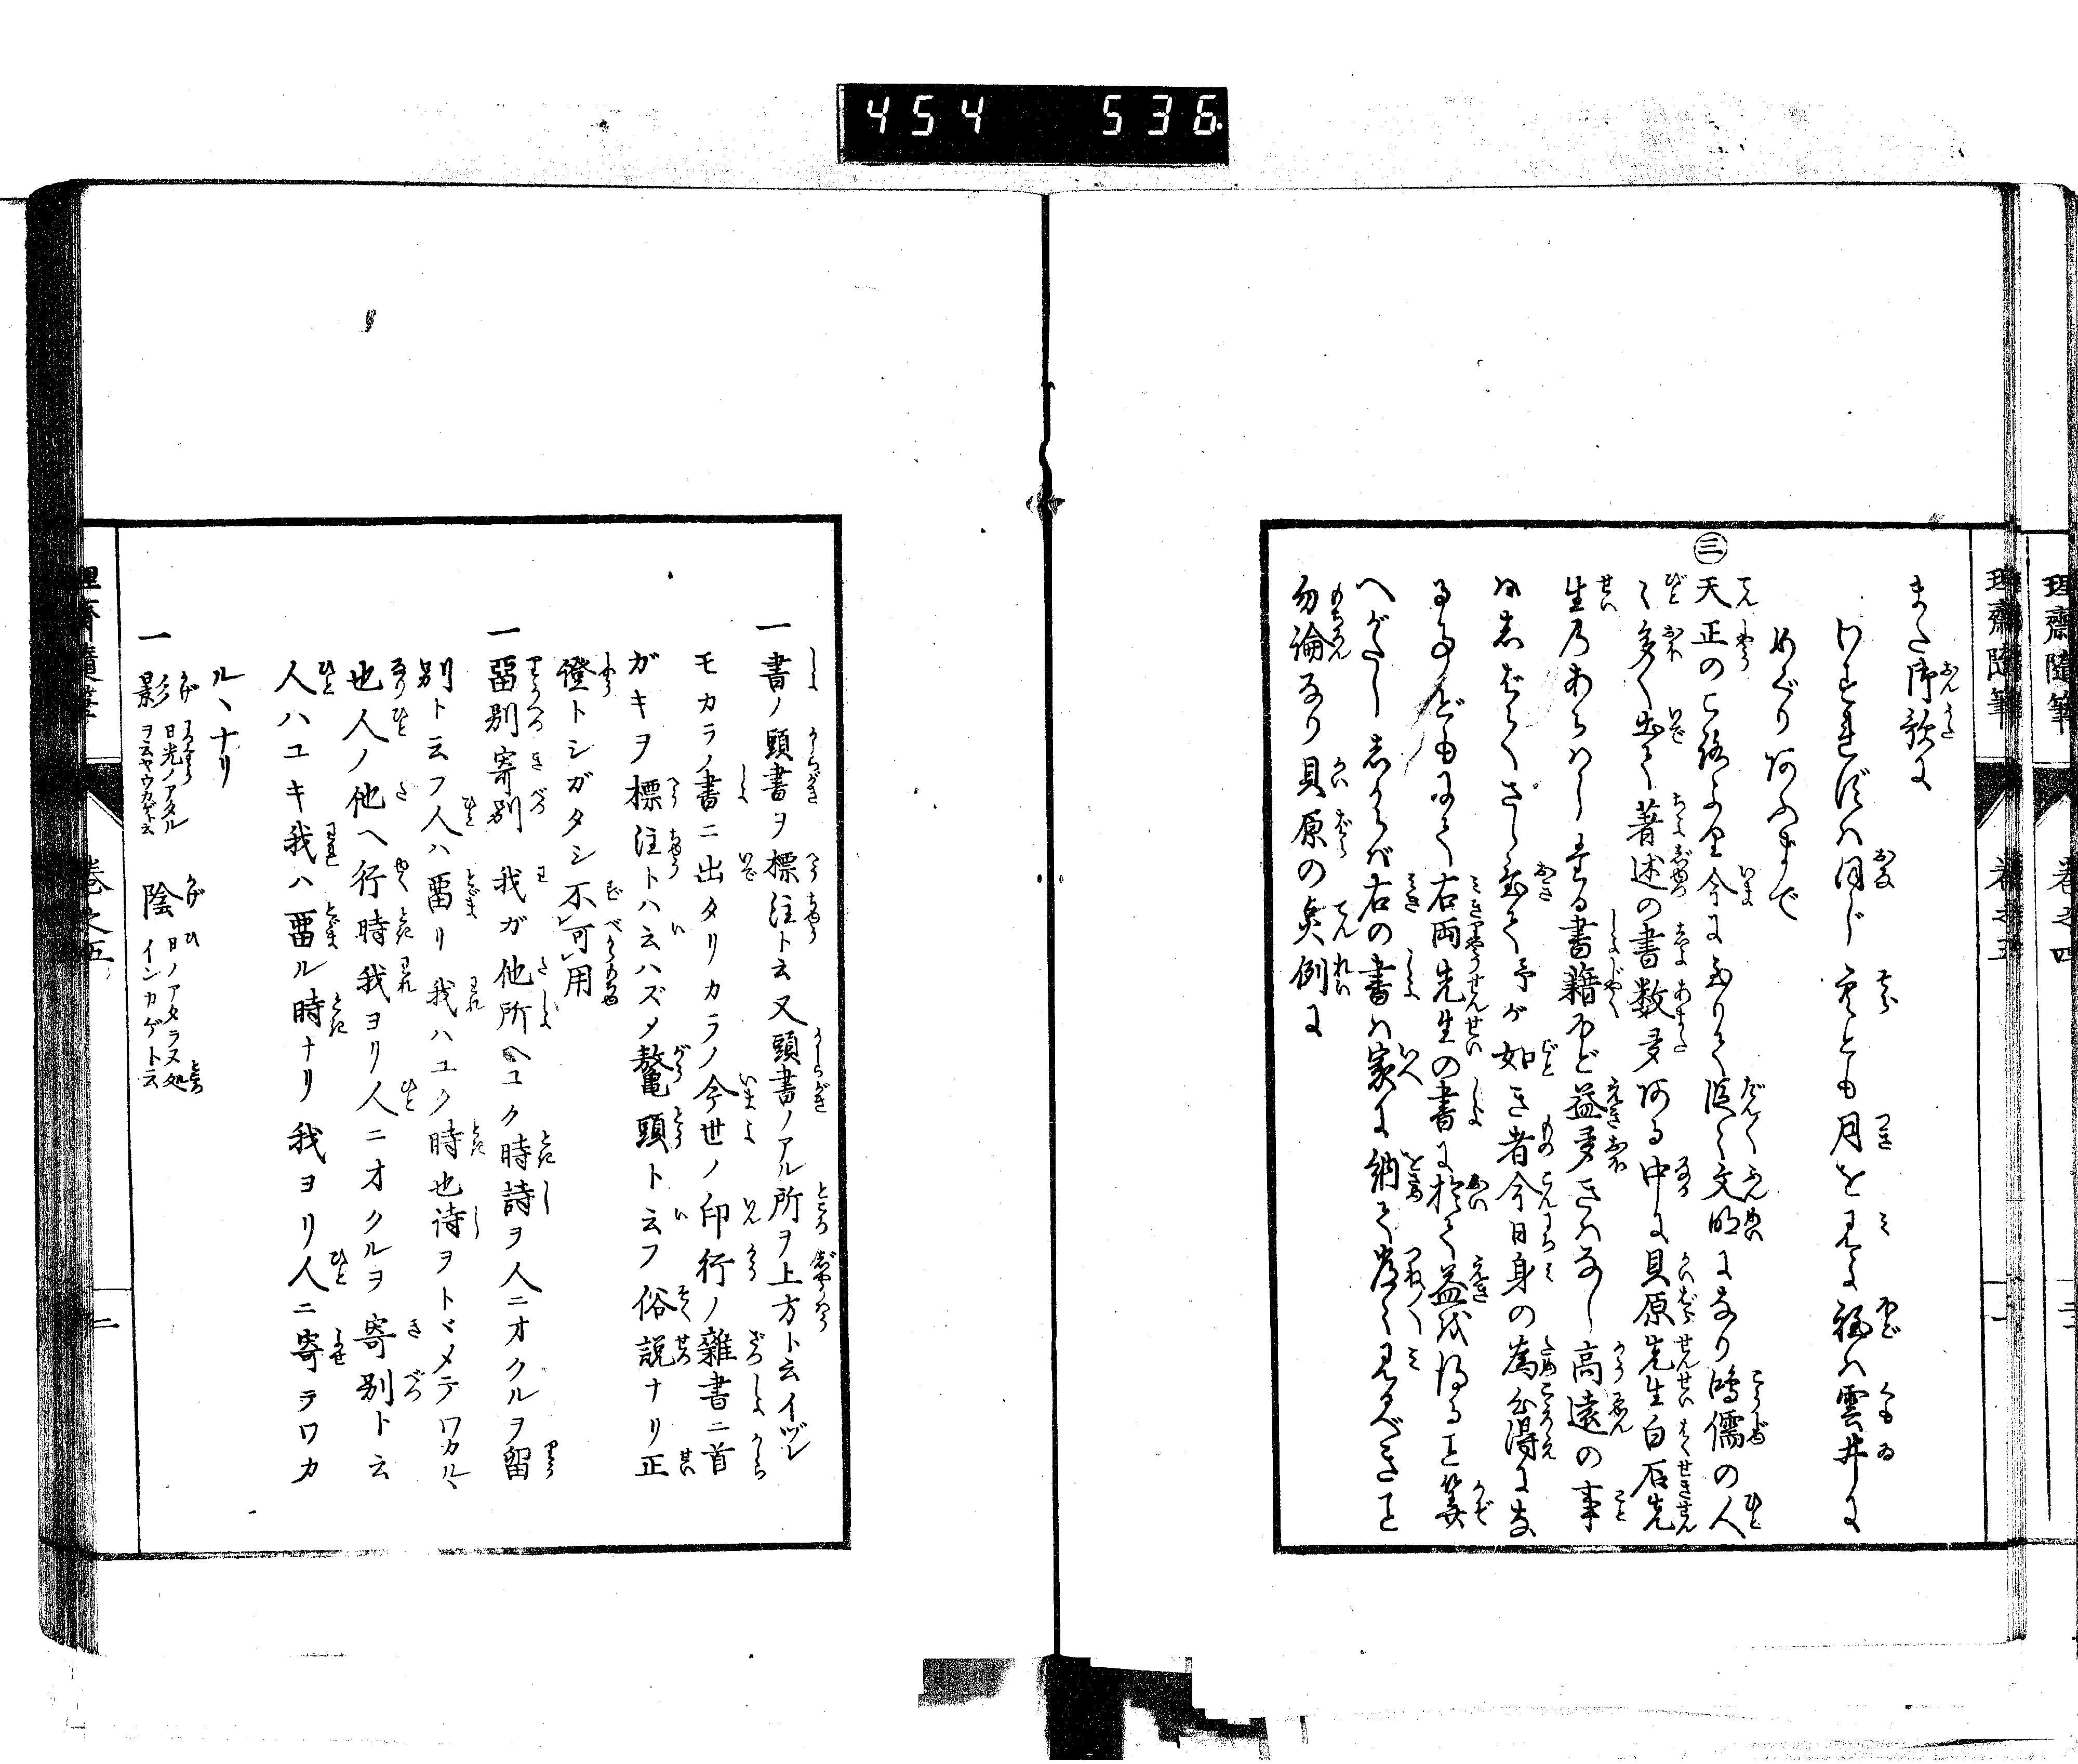 454 536
理齋隨筆 巻之四
理齋隨筆 巻之五 一
また御歌に
わすれずは同じ
空とも月をみよ程は雲井に
めぐりあふまで
㊂天正のころより今に至りて段々文明になり鴻儒の人
々多く出て著述の書数多ある中に貝原先生白石先
生のあらはしまる書籍ほど益多きはなし高遠の事
はしばらくさし置て予が如き者今日身の為心得に
る事どもにて右両先生の書に於て益を得ること筭
へがたししからば右の書は家に納て常々みるべきこと
勿論なり貝原の凡例に
一書ノ頭書ヲ標注ト云又頭書ノアル所ヲ上方ト云イヅレ
モカラノ書ニ出タリカラノ今世ノ印行ノ雜書ニ首
ガキヲ標注トハ云ハズ〆鼇頭ト云フ俗説ナリ正
證トシガタシ不可用
一畱別寄別 我ガ他所ヘユク時詩ヲ人ニオクルヲ留
別ト云フ人ハ畱リ我ハユク時也詩ヲトヾメテワカルヽ
也人ノ他ヘ行時我ヨリ人ニオクルヲ寄別ト云
人ハユキ我ハ畱ル時ナリ我ヨリ人ニ寄テワカ
ルヽナリ
一影 日光ノアタル
ヲ云ヤウカゲト云
陰 日ノアタラヌ処
インカゲト云
理齋隨筆 巻之五 二